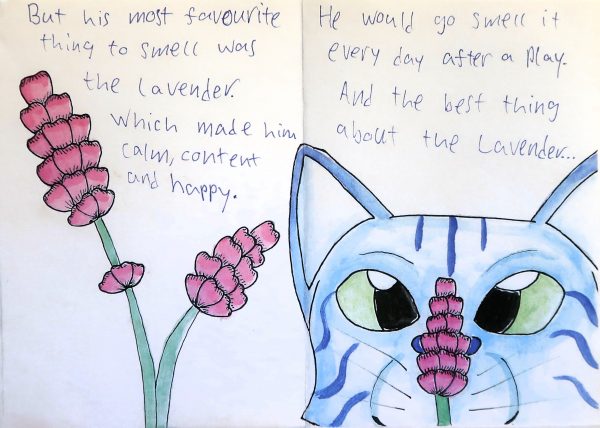 But his most favourite
thing to smell was
the lavender.
Which made him
calm, content
and happy.
He would go smell it
every day after a play.
And the best thing
about the lavender...